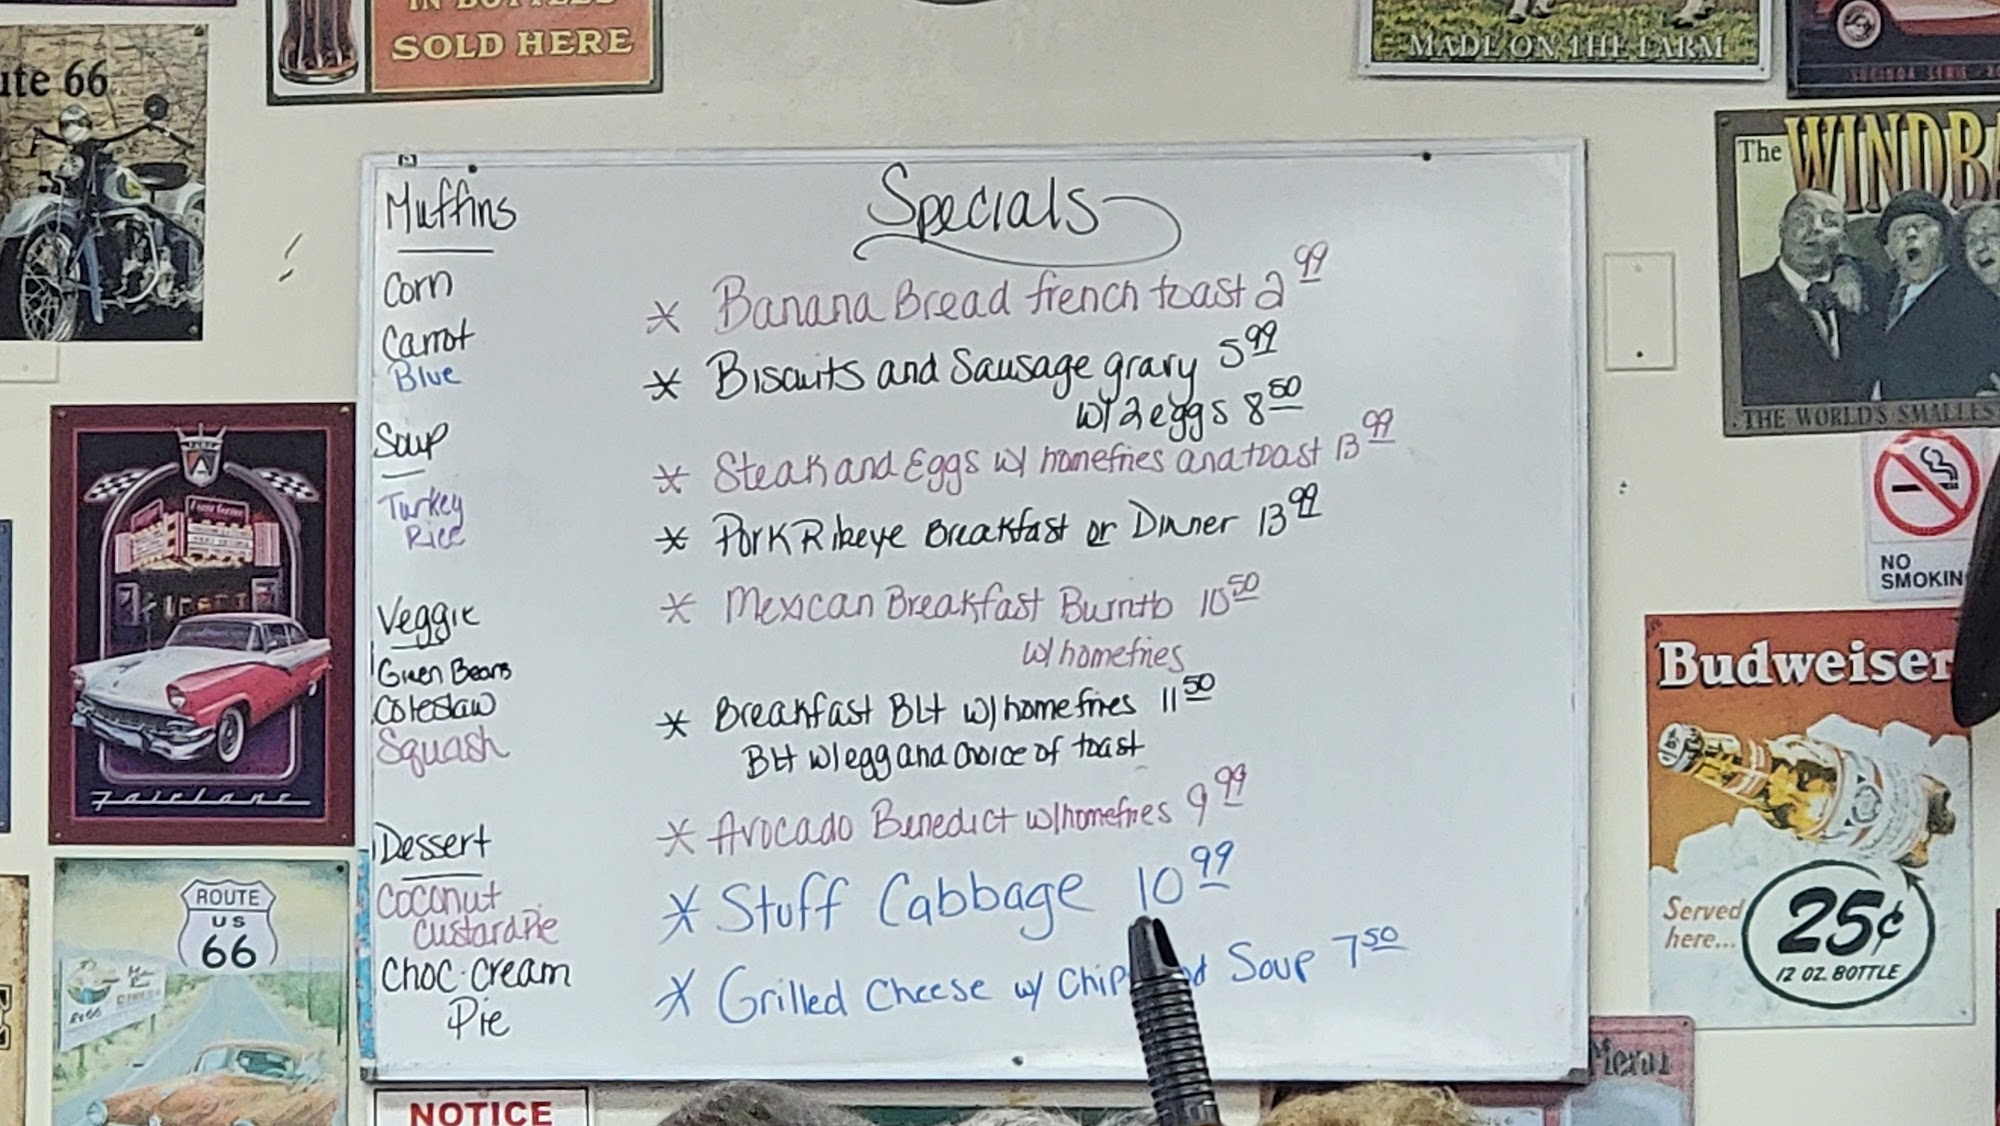 IN BOTTLES
SOLD HERE
MADE ON THE FARM
ute 66
The WINDBA
THE WORLD'S SMALLES
NO
SMOKIN
Budweiser
Served
here...
25¢
12 OZ. BOTTLE
Menu
Fairlane
ROUTE
US
66
NOTICE
Muffins
Corn
Carrot
Blue
Soup
Turkey
Rice
Veggie
Green Beans
Coleslaw
Squash
Dessert
Coconut
Custard Pie
Choc. Cream
Pie
Specials
* Banana Bread french toast 2 99
* Biscuits and Sausage gravy 5 99
w/ 2 eggs 8 50
* Steak and Eggs w/ homefries and toast 13 99
* Pork Ribeye Breakfast or Dinner 13 99
* Mexican Breakfast Burrito 10 50
w/ homefries
* Breakfast BLt w/ homefries 11 50
BLt w/ egg and choice of toast
* Avocado Benedict w/ homefries 9 99
* Stuff Cabbage 10 99
* Grilled Cheese w/ Chip Soup 7 50